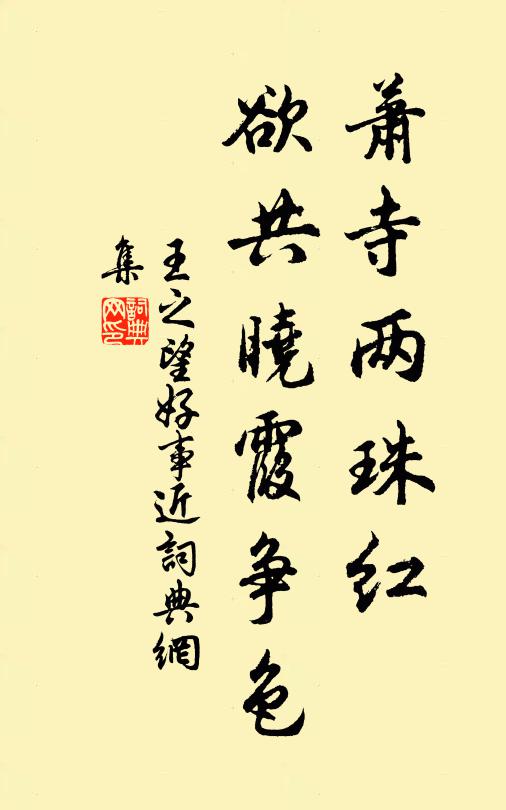 萧寺两珠红
欲共曉霞争色
王之望好事近詞典網
集
詞典
网印